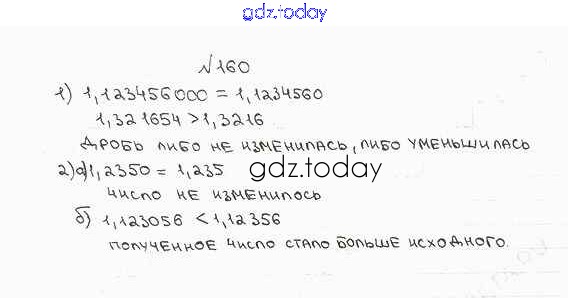 gdz.today
№160
1) 1,123456000 = 1,1234560
1,321654 > 1,3216
ДРОБЬ ЛИБО НЕ ИЗМЕНИЛАСЬ, ЛИБО УМЕНЬШИЛАСЬ
2) а) 1,2350 = 1,235
gdz.today
ЧИСЛО НЕ ИЗМЕНИЛОСЬ
б) 1,123056 < 1,12356
ПОЛУЧЕННОЕ ЧИСЛО СТАЛО БОЛЬШЕ ИСХОДНОГО.